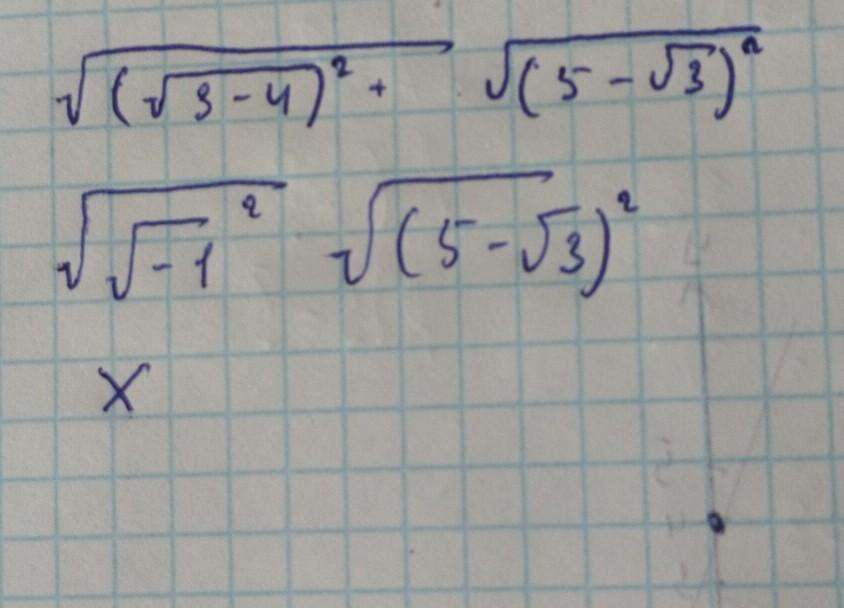 √(√(3-4))² + √(5-√3)²
√√-1² √(5-√3)²
X